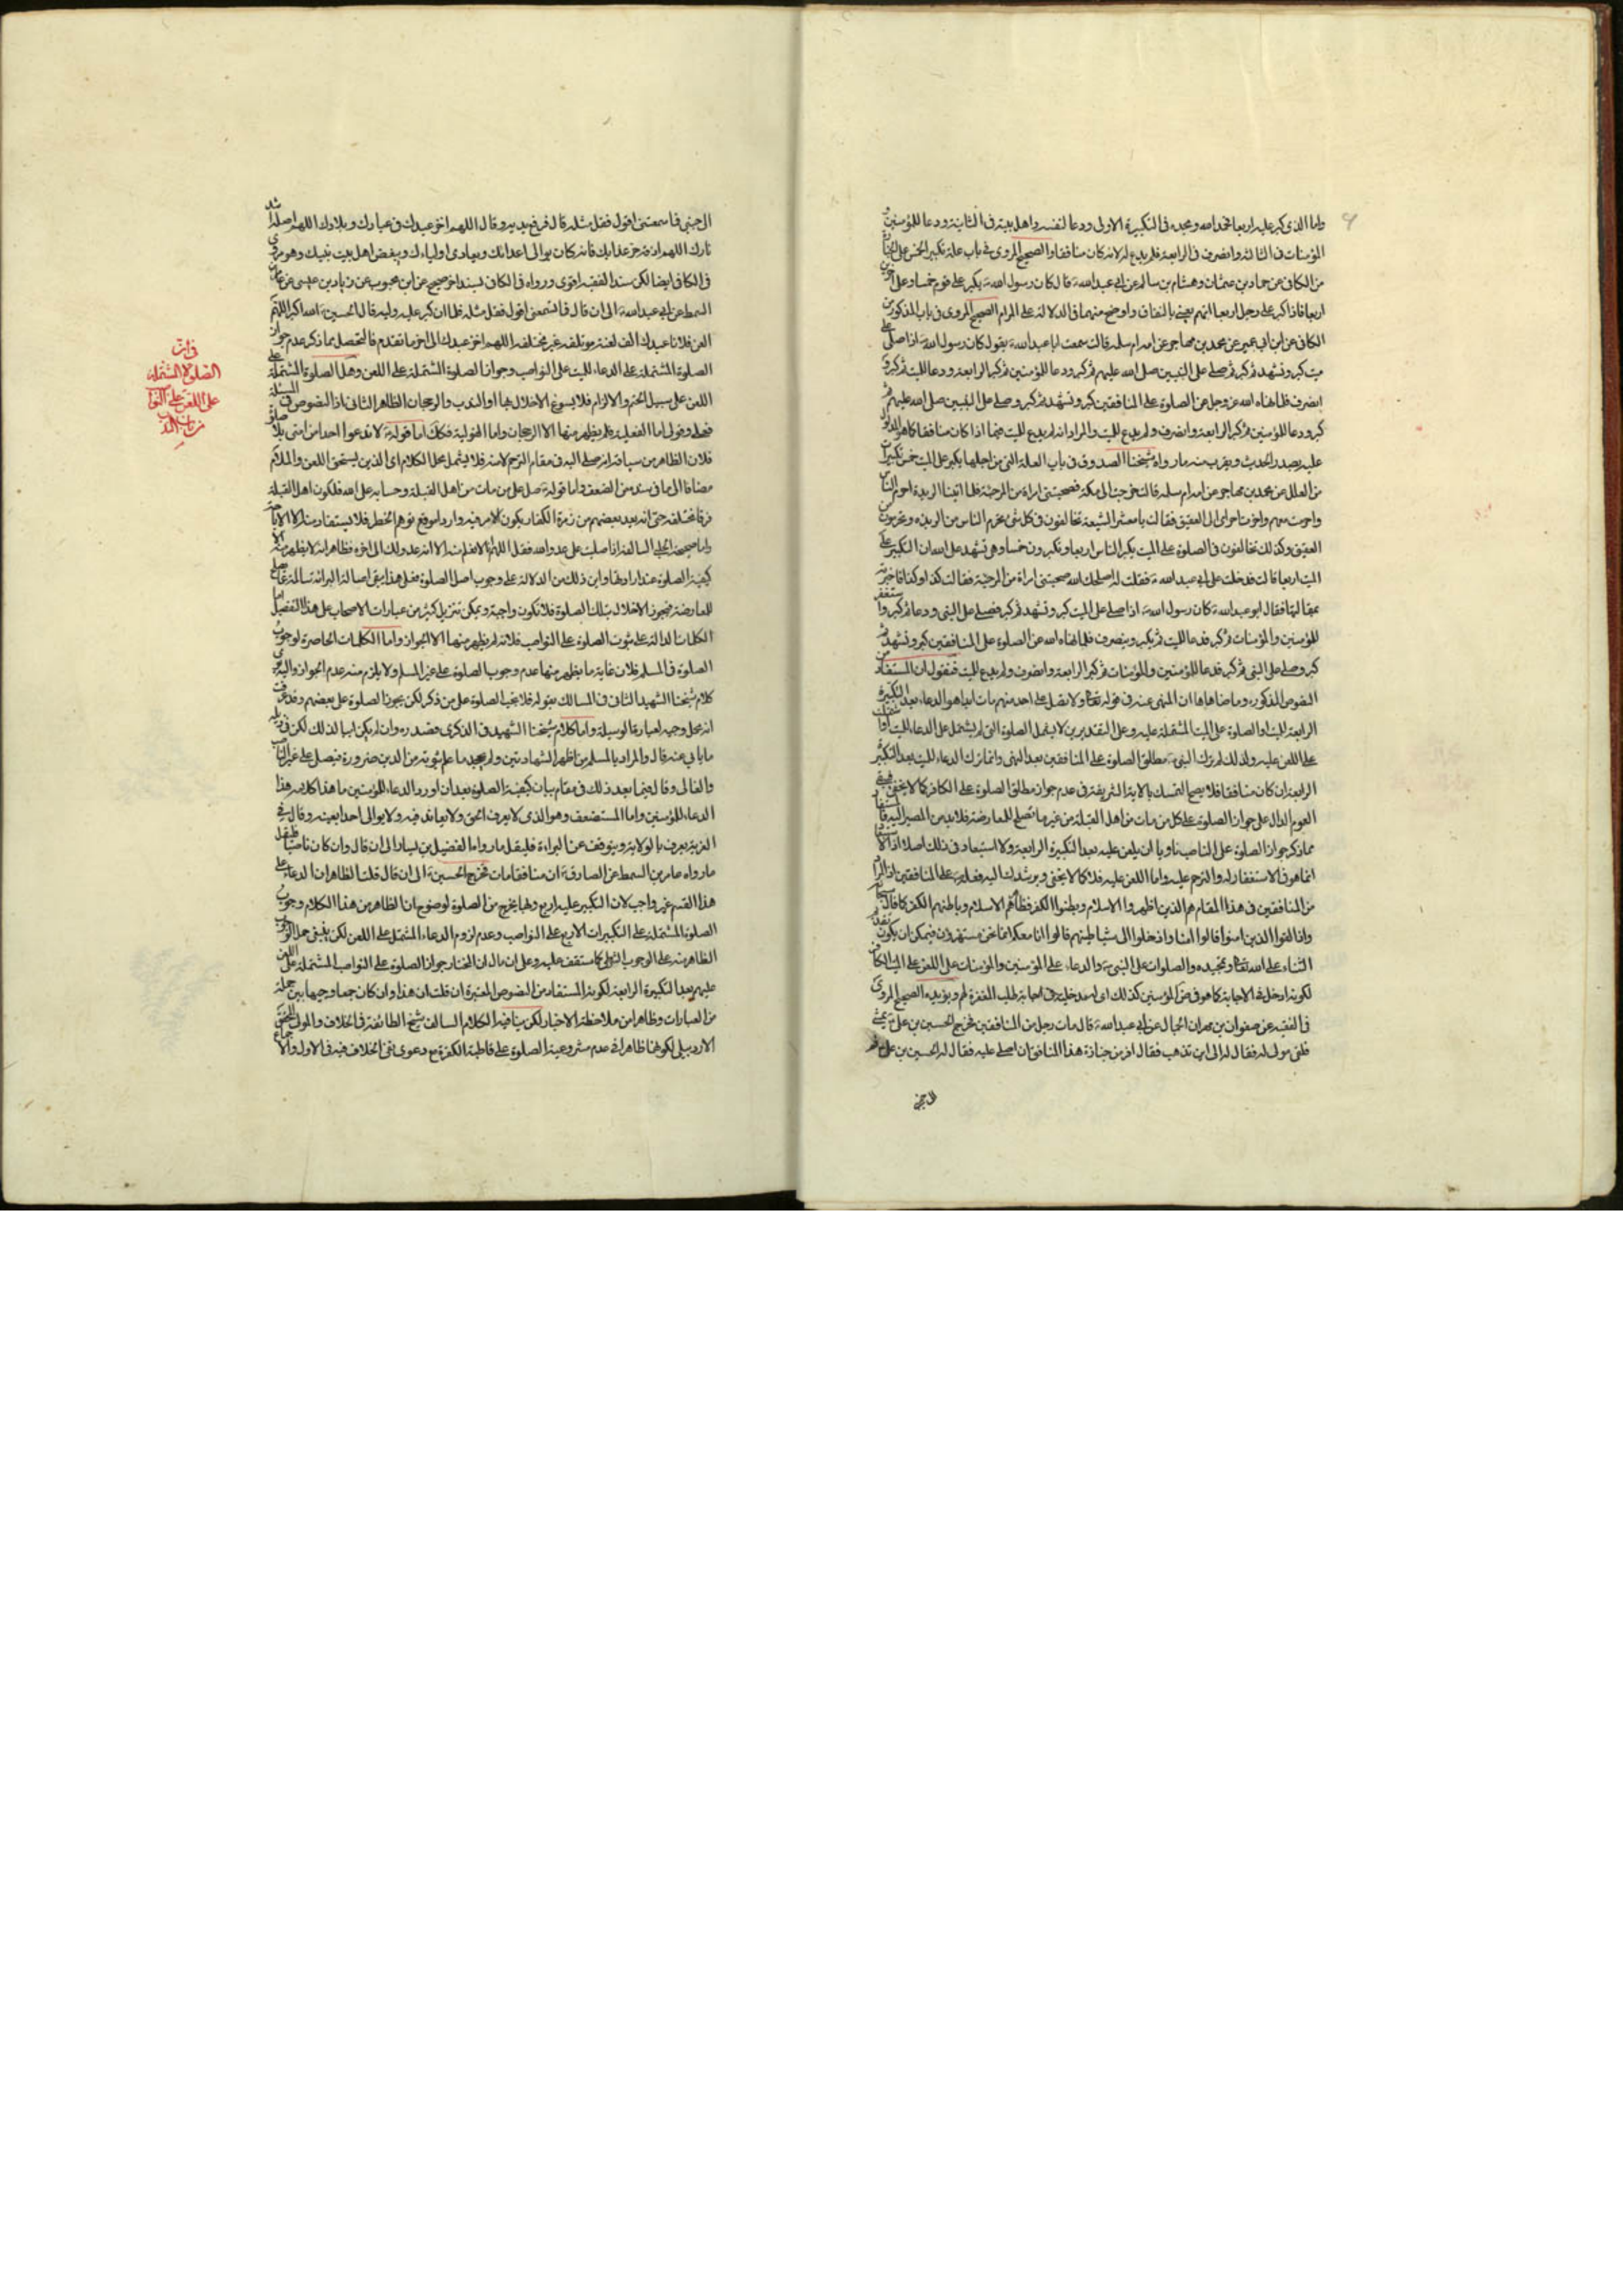 واما الذی کبر علیه اربعا فحمد الله ومجده فی التکبیرة الاولی ودعا لنفسه واهل بیته فی الثانیة ودعا للمؤمنین و
المؤمنات فی الثالثة وانصرف فی الرابعة فلم یدع له لانه کان منافقا والصحیح المروی فی باب علة تکبیر الخمس علی الجنازة
من الکافی عن حماد بن عثمان وهشام بن سالم عن ابی عبد الله ع قال کان رسول الله ص یکبر علی قوم خمسا وعلی اخرین
اربعا فاذا کبر علی رجل اربعا اتهم یعنی بالنفاق واوضح منهما فی الدلالة علی المرام الصحیح المروی فی باب المذکور من
الکافی عن ابن ابی عمیر عن محمد بن مهاجر عن امه ام سلمة قالت سمعت ابا عبد الله ع یقول کان رسول الله ص اذا صلی علی
میت کبر وتشهد ثم کبر ثم صلی علی النبیین صلی الله علیهم ثم کبر ودعا للمؤمنین ثم کبر الرابعة ودعا للمیت ثم کبر و
انصرف فلما نهاه الله عز وجل عن الصلوة علی المنافقین کبر وتشهد ثم کبر وصلی علی النبیین صلی الله علیهم ثم
کبر ودعا للمؤمنین ثم کبر الرابعة وانصرف ولم یدع للمیت والمراد انه لم یدع للمیت فیما اذا کان منافقا کما هو المدلول
علیه بصدر الحدیث ویقرب منه ما رواه شیخنا الصدوق فی باب العلة التی من اجلها یکبر علی المیت خمس تکبیرات
من العلل عن محمد بن مهاجر عن امه ام سلمة قالت خرجت الی مکة فصحبتنی امراة من المرجئة فلما اتینا الربذة احرم الناس
واحرمت معهم واخرت احرامی الی العقیق فقالت یا معشر الشیعة تخالفون فی کل شئ یحرم الناس من الربذه وتحرمون من
العقیق وکذلک تخالفون فی الصلوة علی المیت یکبر الناس اربعا وتکبرون خمسا وهی تشهد علی الله ان التکبیر علی
المیت اربعا قالت فدخلت علی ابی عبد الله ع فقلت له اصلحک الله صحبتنی امراة من المرجئة فقالت کذا وکذا فاخبرته
بمقالتها فقال ابو عبد الله ع کان رسول الله ص اذا صلی علی المیت کبر وتشهد ثم کبر فصلی علی النبی ودعا ثم کبر واستغفر
للمؤمنین والمؤمنات ثم کبر فدعا للمیت ثم یکبر وینصرف فلما نهاه الله عن الصلوة علی المنافقین کبر وتشهد ثم
کبر وصلی علی النبی ثم کبر فدعا للمؤمنین والمؤمنات ثم کبر الرابعة وانصرف ولم یدع للمیت فنقول ان المستفاد من
النصوص المذکوره وما ضاهاها ان المنهی عنه فی قوله تعالی ولا تصل علی احد منهم مات ابدا هو الدعاء بعد التکبیرة
الرابعة للمیت او الصلوة علی المیت المشتملة علیه وعلی التقدیرین لا یشمل الصلوة التی لم یشتمل علی الدعاء للمیت او اشتملت
علی اللعن علیه ولذلک لم یترک النبی ص مطلق الصلوة علی المنافقین بعد النهی وانما ترک الدعاء للمیت بعد التکبیر
الرابعة ان کان منافقا فلا یصح التمسک بالایة الشریفة فی عدم جواز مطلق الصلوة علی الکافر کما لا یخفی فیبقی
العموم الدال علی جواز الصلوة علی کل من مات من اهل القبلة من غیر ما تصلح للمعارضة فلابد من المصیر الیه فاستفاد
مما ذکر جواز الصلوة علی الناصب ناویا ان یلعن علیه بعد التکبیرة الرابعة ولا استبعاد فی ذلک اصلا اذ الاستبعاد
انما هو فی الاستغفار له والترحم علیه واما اللعن علیه فلا کما لا یخفی ویرشدک الیه فعله ص علی المنافقین اذ المراد
من المنافقین فی هذا المقام هم الذین اظهروا الاسلام وبطنوا الکفر فظاهرهم الاسلام وباطنهم الکفر کما قال سبحانه
واذا لقوا الذین امنوا قالوا امنا واذا خلوا الی شیاطینهم قالوا انا معکم انما نحن مستهزؤن فیمکن ان یکون تقدم
الثناء علی الله تعالی وتمجیده والصلوات علی النبی ص والدعاء علی المؤمنین والمؤمنات علی اللعن علی المیت الکافر
لکونه ادخل فی الاجابة کما هو فی حق المؤمنین کذلک ای له مدخلیة فی اجابة طلب المغفرة لهم ویؤیده الصحیح المروی
فی الفقیه عن صفوان بن مهران الجمال عن ابی عبد الله ع قال مات رجل من المنافقین فخرج الحسین بن علی ع یمشی
فلقی مولی له فقال له الی این تذهب فقال افر من جنازة هذا المنافق ان اصلی علیه فقال له الحسین بن علی ع قم
الی جنبی
الی جنبی فما سمعتنی اقول فقل مثله قال فرفع یدیه وقال اللهم اخز عبدک فی عبادک وبلادک اللهم اصله اشد
نارک اللهم اذقه حر عذابک فانه کان یوالی اعدائک ویعادی اولیاءک ویبغض اهل بیت نبیک وهو مروی
فی الکافی ایضا لکن سند الفقیه اقوی ورواه فی الکافی بسند اخر صحیح عن ابن محبوب عن زیاد بن عیسی عن عامر بن
السمط عن ابی عبد الله ع الی ان قال فما تسمعنی اقول فقل مثله فلما ان کبر علیه ولیه قال الحسین ع الله اکبر اللهم
العن فلانا عبدک الف لعنة مؤتلفه غیر مختلفه اللهم اخز عبدک الی اخر ما تقدم فالمتحصل مما ذکر عدم جواز
الصلوة المشتملة علی الدعاء للمیت علی النواصب وجواز الصلوة المشتملة علی اللعن وهل الصلوة المشتملة علی
اللعن علی سبیل الحتم والالزام فلا یسوغ الاخلال بها او الندب والرجحان الظاهر الثانی اذ النصوص فی المسئلة
فعلی وقولی اما الفعلیة فلم یظهر منها الا الرجحان واما القولیة فکک اما قوله ص لا تدعوا احدا من امتی بلا صلوة
فلان الظاهر من سیاقه انه صلی الیه فی مقام الترحم لامته فلا یشمل محل الکلام ای الذین یستحق اللعن والملام
مضافا الی ما فی سنده من الضعف واما قوله ع صل علی من مات من اهل القبلة وحسابه علی الله فلکون اهل القبلة
فرقا مختلفة حتی انه یعد بعضهم من زمرة الکفار یکون الامر فیه واردا موقع توهم الحظر فلا یستفاد منه الا الاباحة
واما صحیحة الحلبی السالفة اذا صلیت علی عدو الله فقل اللهم انا لا نعلم منه الا انه عدو لک الی اخره فظاهر انه لا یظهر منه الا
کیفیة الصلوة عند ارادتها واین ذلک من الدلالة علی وجوب اصل الصلوة فعلی هذا یبقی اصالة البرائة سالمة عما یصلح
للمعارضة فیجوز الاخلال بتلک الصلوة فلا تکون واجبة ویمکن تنزیل کثیر من عبارات الاصحاب علی هذا التفصیل اما
الکلمات الدالة علی ثبوت الصلوة علی النواصب فلانه لم یظهر منها الا الجواز واما الکلمات الحاصرة لوجوب
الصلوة فی المسلم فلان غایة ما یظهر منها عدم وجوب الصلوة علی غیر المسلم ولا یلزم منه عدم الجواز والیه یرمی
کلام شیخنا الشهید الثانی فی المسالک بقوله فلا تجب الصلوة علی من ذکر لکن یجوز الصلوة علی بعضهم وقد عرفت
انه محل وجیه لعبارة الوسیلة واما کلام شیخنا الشهید فی الذکری فصدره وان لم یکن ابیا لذلک لکن فی ذیله
ما یابی عنه قال والمراد بالمسلم من اظهر الشهادتین ولم یجحد ما علم ثبوته من الدین ضرورة فیصلی علی غیر الناصب
والغالی وقال فیما بعد ذلک فی مقام بیان کیفیة الصلوة بعد ان اورد الدعاء للمؤمنین ما هذا کلامه هذا
الدعاء للمؤمنین واما المستضعف وهو الذی لا یعرف الحق ولا یعاند فیه ولا یوالی احدا بعینه وقال فی
الغریة یعرف بالولایة ویتوقف عن البراءة فلیقل ما رواه الفضیل بن یسار الی ان قال وان کان ناصبا فلیقل
ما رواه عامر بن السمط عن الصادق ع ان منافقا مات فخرج الحسین ع الی ان قال قلنا الظاهر ان الدعاء علی
هذا القسم غیر واجب لان التکبیر علیه اربع وبها یخرج من الصلوة لوضوح ان الظاهر من هذا الکلام وجوب
الصلوة المشتملة علی التکبیرات الاربع علی النواصب وعدم لزوم الدعاء المشتمل علی اللعن لکن ینبغی حمل الوجوب
الظاهر منه علی الوجوب الشرطی کما ستقف علیه وعلی ای حال ان المختار جواز الصلوة علی النواصب المشتملة علی اللعن
علیهم بعد التکبیرة الرابعة لکونه المستفاد من النصوص المعتبرة ان قلت ان هذا وان کان جمعا وجیها بین جملة
من العبارات وظاهرا من ملاحظة الاخبار لکن ینافیه الکلام السالف من شیخ الطائفة فی الخلاف والمولی المحقق
الاردبیلی لکونهما ظاهرا فی عدم مشروعیة الصلوة علی قاطبة الکفرة مع دعوی نفی الخلاف فیه فی الاول والاجماع
فی ان
الصلوة المشتملة
علی اللعن علی النواصب
من باب الندب